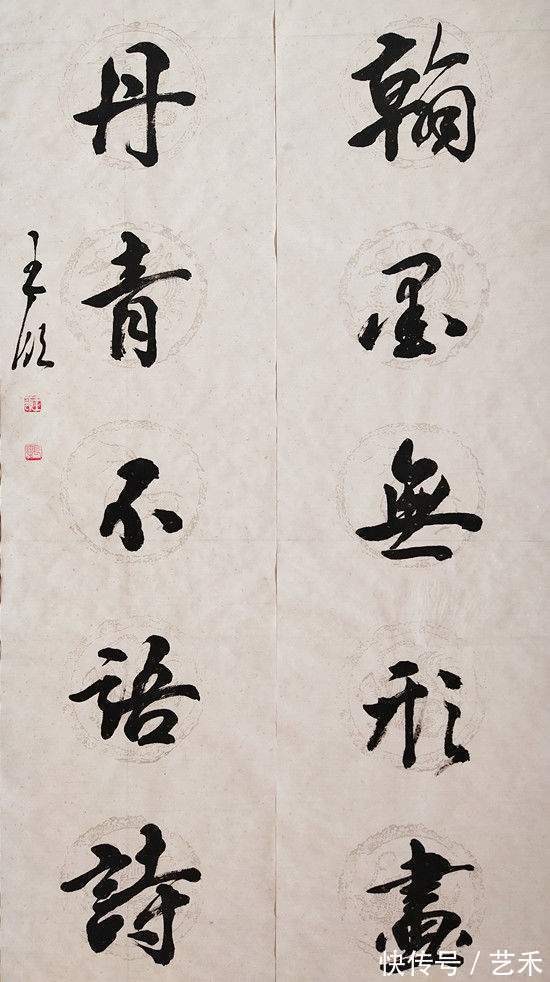 翰墨無形畫
丹青不語詩
王
快传号 / 艺禾